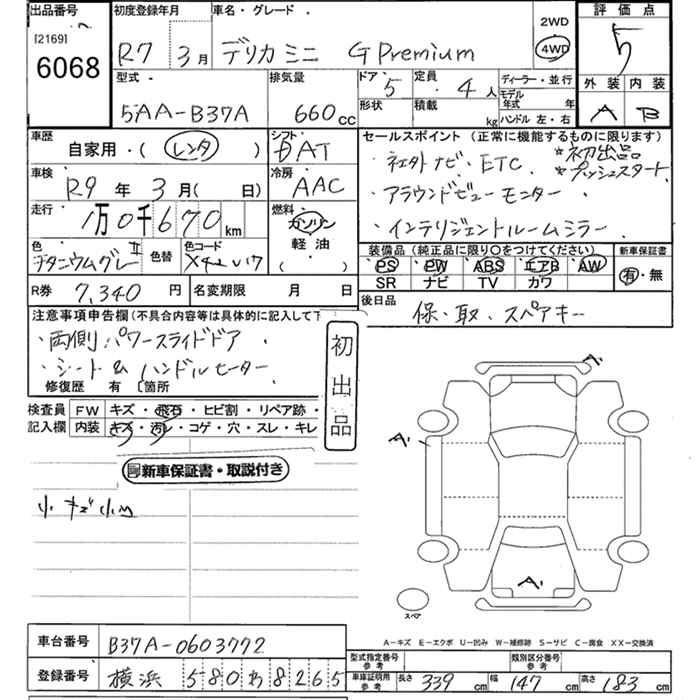 出品番号
[2169]
6068
初度登録年月
R7 3月
車名・グレード
デリカミニ G Premium
2WD
4WD
評価点
5
外装 内装
A B
型式
5AA-B37A
排気量
660cc
ドア 5
形状
定員 4人
積載 kg
ディーラー・並行
モデル年式 年
ハンドル 左・右
車歴
自家用・(レンタ)
シフト
AT
車検
R9年3月(日)
冷房
AAC
走行
1万0千670km
燃料
ガソリン
軽油
( )
色
チタニウムグレーⅡ
色替
色コード
R券 7,340円
名変期限 月 日
セールスポイント(正常に機能するものに限ります)
・ネエ外ナビ・ETC *初出品
*プッシュスタート
・アラウンドビューモニター
・インテリジェントルームミラー
装備品(純正品に限り○をつけてください)
PS PW ABS エアB AW
SR ナビ TV カワ
新車保証書
有・無
後日品
保・取・スペアキー
注意事項申告欄(不具合内容等は具体的に記入して下
・両側パワースライドドア
・シート&ハンドルヒーター
修復歴 有〔箇所
初出品
検査員記入欄
FW キズ・飛石・ヒビ割・リペア跡・
内装 キズ・汚レ・コゲ・穴・スレ・キレ
新車保証書・取説付き
小キズ小凹
A'
A'
A'
スペア
A-キズ E-エクボ U-凹み W-補修跡 S-サビ C-腐食 XX-交換済
車台番号 B37A-0603772
登録番号 横浜 580わ8265
型式指定番号 参考
類別区分番号 参考
車庫証明用 参考
長さ 339cm 幅 147cm 高さ 183cm